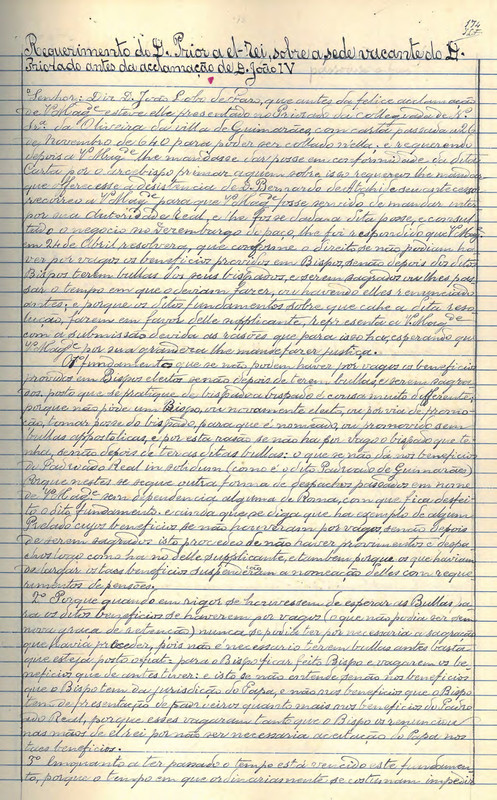 174
Requerimento do D. Prior a el-rei, sobre a sede vacante do D.
Priorado antes da acclamação de D. João IV
"Senhor: Diz D. João Lobo de Faro, que antes da felice acclamação
de V.ª Mag.de esteve elle presentado no Priorado da collegiada de N.ª
Sr.ª da Oliveira da villa de Guimarães com carta passada a 16
de novembro de 1640 para poder ser collado nella, e requerendo
depois a V.ª Mag.de lhe mandasse dar posse em conformidade da dita
Carta por o arcebispo primaz a quem sobre isso requereu lhe mandar
que offerecesse a desistencia de D. Bernardo de Atahide seu antecessor
recorreu a V.ª Mag.de para que V.ª Mag.de fosse servido de mandar ent
por sua autoridade real, e lhe fosse dada a dita posse, e consul-
tado o negocio no desembargo do paço, lhe foi respondido que V.ª Mag.
em 24 de Abril resolvera, que conforme o direito se não podiam ha-
ver por vagos os beneficios providos em Bispos senão depois dos ditos
Bispos terem bullas dos seus bispados, e serem sagrados ou lhes pas-
sar o tempo em que o deviam fazer, ou havendo elles renunciado
antes; e porque os ditos fundamentos sobre que cahe a dita reso-
lução, fazem em favor delle supplicante, representa a V.ª Mag.de
com a submissão devida as rasões que para isso ha, esperando que
V.ª Mag.de por sua grandeza lhe mande fazer justiça.
1.º fundamento que se não podem haver por vagos os beneficios
providos em Bispos eleitos senão depois de terem bullas, e serem sagra-
dos, posto que se pratique de bispado a bispado é cousa muito differente,
porque não póde um Bispo, ou novamente eleito, ou por via de promo-
ção, tomar posse do bispado, para que é nomiado, ou promovido sem
bullas appostolicas, e por esta rasão se não ha por vago o bispado que ti-
nha, senão depois de ter as ditas bullas: o que se não dá nos beneficios
do Padroado Real in solidum (como é o dito Padroado de Guimarães)
porque nestes se segue outra forma de despachos passados em nome
de V.ª Mag.de sem dependencia alguma de Roma, com que fica desfei-
to o dito fundamento, e ainda que se diga que ha exemplo de algum
Prelado cujos beneficios se não houveram por vagos, senão depois
de serem sagrados isto procede de não haver novamentos e despa-
chos logo como ha no delle supplicante, e tambem porque os que haviam
de largar os taes beneficios suspenderam a nomeação delles com reque-
rimentos de pensões.
2.º Porque quando em rigor se houvessem de esperar as Bullas pa-
ra os ditos beneficios se haverem por vagos (o que não podia ser sem
nova graça de retenção) nunca se podia ter por necessaria a sagração
que havia proceder, pois não é necessario terem bullas antes basta
que esteja posto o fiat, para o Bispo ficar feito Bispo e vagarem os be-
neficios que de antes tiver: e isto se não entende senão nos beneficios
que o Bispo tem da jurisdicção do Papa, e não nos beneficios que o Bispo
tem de presentação de padroeiros quanto mais nos beneficios do Padro-
ado Real, porque esses vagaram tanto que o Bispo os renunciou
nas mãos de el rei por não ser necessaria aceitação do Papa nos
taes beneficios.
3.º Emquanto a ter passado o tempo está vencido este fundamen-
to, porque o tempo em que ordinariamente se costumam impedir